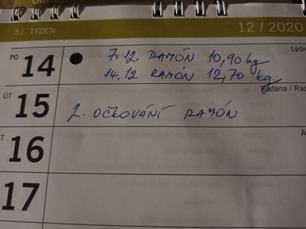 51. TÝDEN 12 / 2020
PO 14 7.12. RAMÓN 10,90 kg
14.12 RAMÓN 12,70 kg
ÚT 15 2. OČKOVÁNÍ RAMÓN
ST 16
17